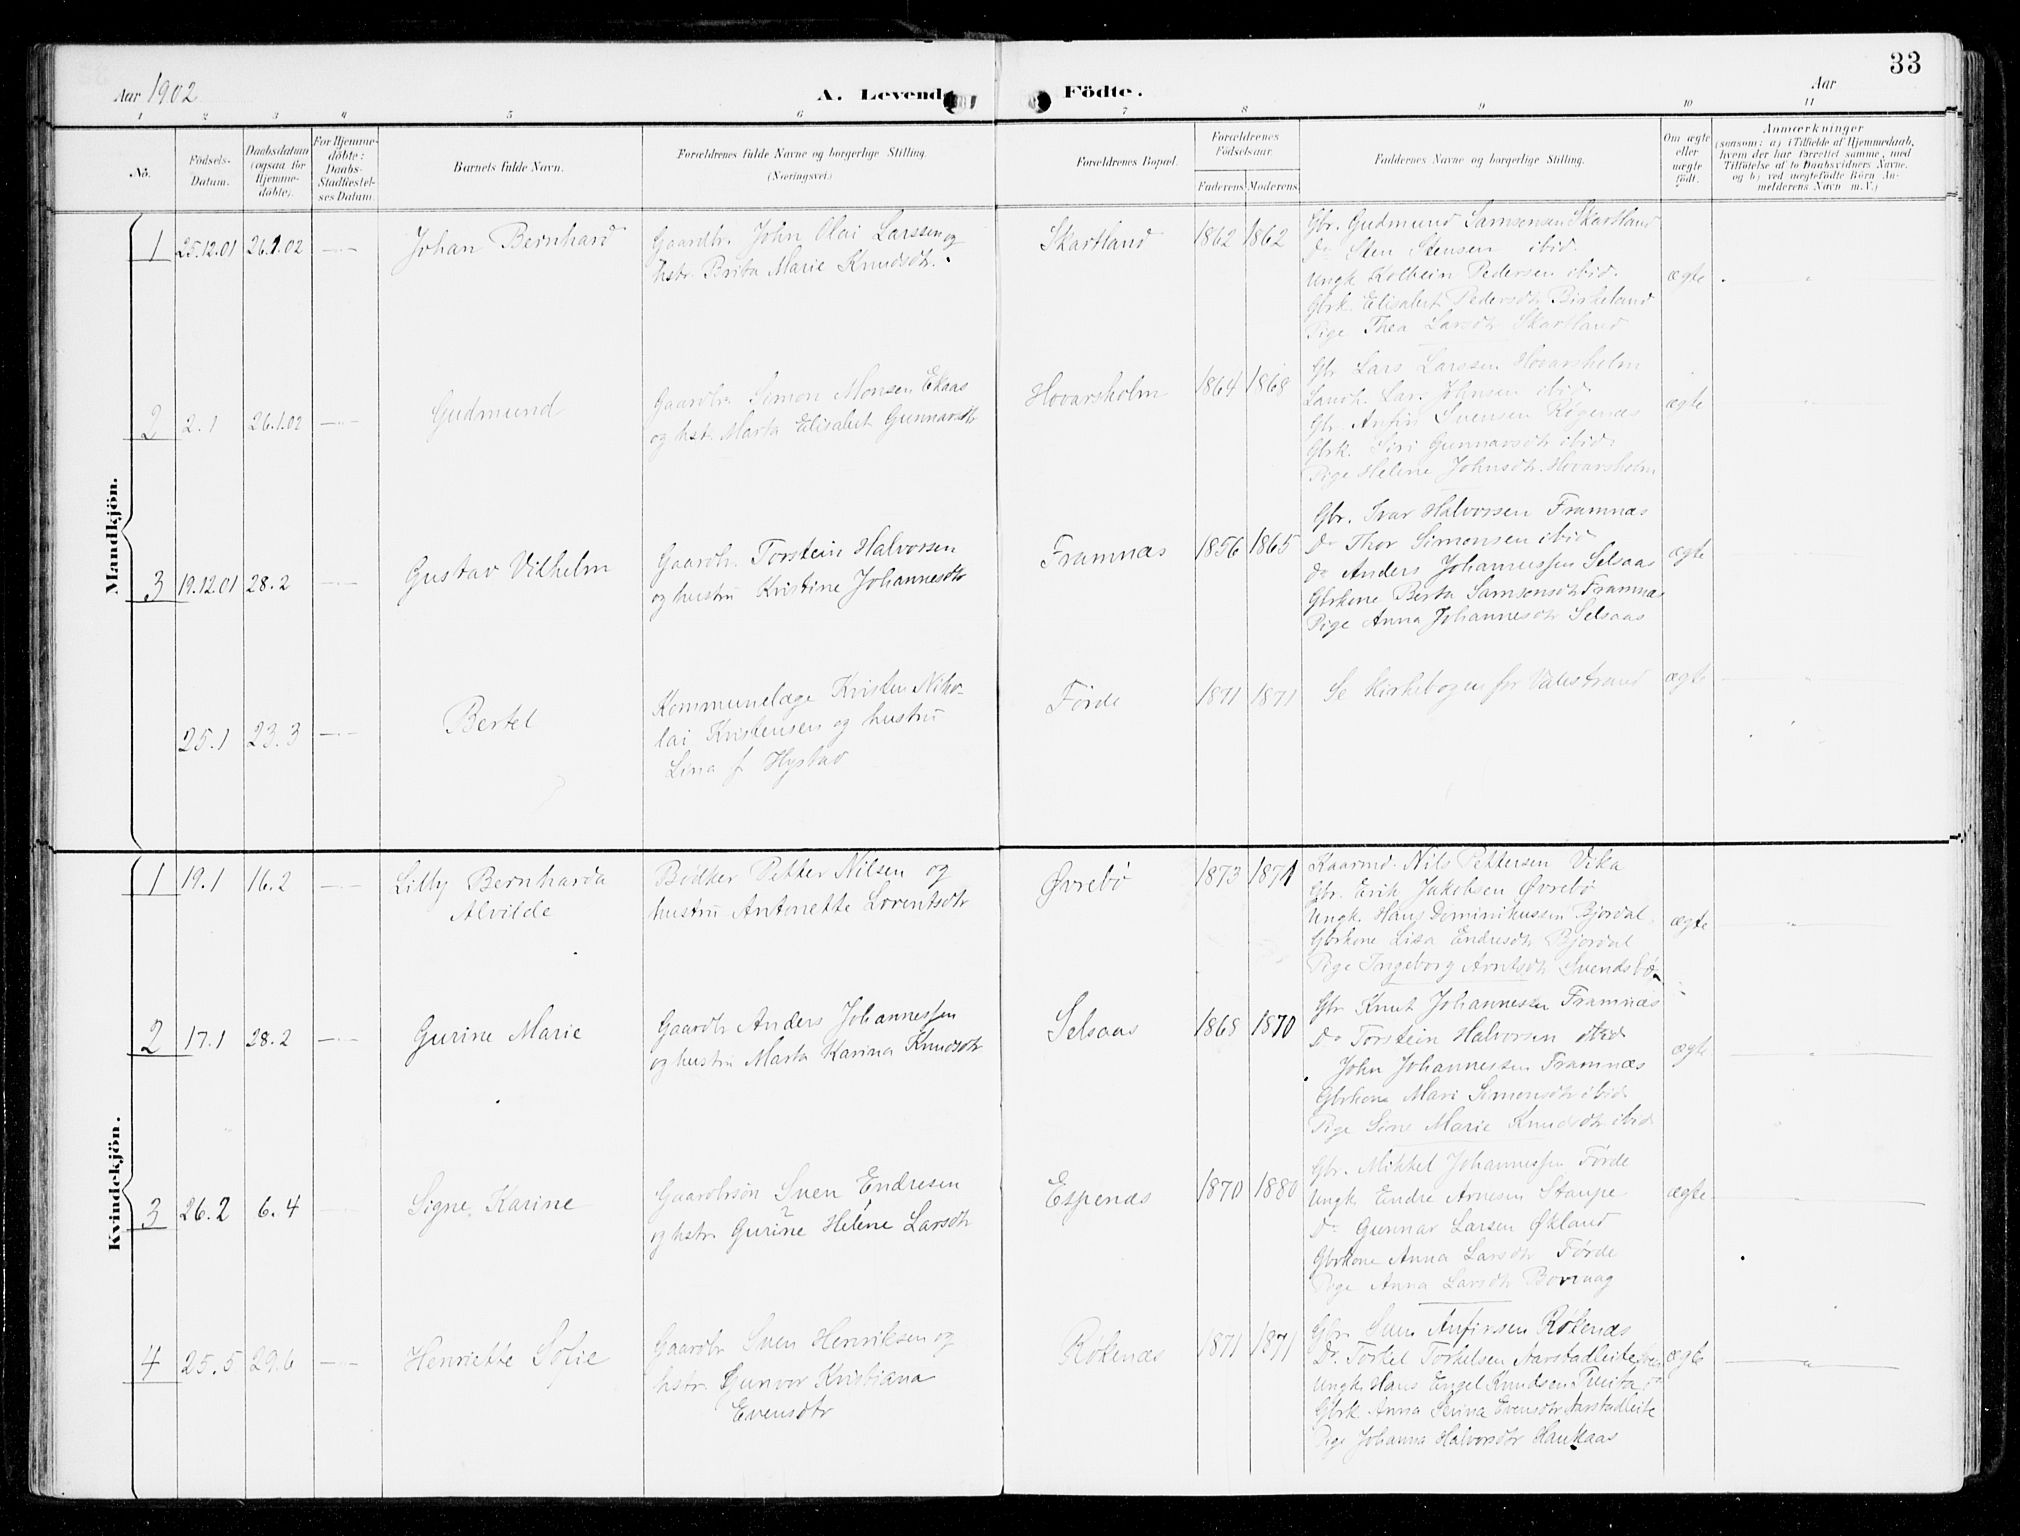 33
Aar 1902
A. Levende Födte.
Aar
1 2 3 4 5 6 7 8 9 10 11
No.
Födsels-
Datum.
Daabsdatum
(ogsaa for
Hjemme-
döbte).
For Hjemme-
döbte:
Daabs-
Stadfæstel-
ses Datum.
Barnets fulde Navn.
Forældrenes fulde Navne og borgerlige Stilling.
(Næringsvei.)
Forældrenes Bopæl.
Forældrenes
Födselsaar.
Faderens. Moderens.
Faddernes Navne og borgerlige Stilling.
Om ægte
eller
uægte
födt.
Anmærkninger
(saasom: a) i Tilfælde af Hjemmedaab,
hvem der har forrettet samme, med
Tilföielse af to Daabsvidners Navne,
og b) ved uægtefödte Börn An-
melderens Navn m.V.)
Mandkjön.
1 25.12.01 26.1.02 Johan Bernhard
Gaardbr. John Olai Larssen og
hstr. Brita Marie Knudsdtr.
Skartland 1862 1862
Gbr. Gudmund Samsonsen Skartland
Do Sten Stensen ibid.
Ungk. Kolbein Pedersen ibid.
Gbrk. Elisabet Pedersdtr Birkeland
Pige Thea Larsdtr Skartland
ægte
2 2.1 26.1.02 Gudmund
Gaardbr. Simon Monsen Ekaas
og hst. Marta Elisabet Gunnarsdtr
Hovarsholm 1864 1868
Gbr Lars Larssen Hovarsholm
Johnsen ibid
Gbr. Anfin Svensen Røgenæs
Gbrk. Siri Gunnarsdtr ibid.
Pige Helene Johnsdtr. Hovarsholm
ægte
3 19.12.01 28.2 Gustav Vilhelm
Gaardbr. Torstein Halvorsen
og hustru Kristine Johannesdtr
Framnæs 1856 1865
Gbr. Ivar Halvorsen Framnæs
Do Thor Simonsen ibid
Do Anders Johannessen Selsaas
Gbrkone Berta Samsonsdtr Framnæs
Pige Anna Johannesdtr Selsaas
ægte
25.1 23.3 Bertel
Kommunelæge Kristen Niko-
lai Kristensen og hustru
Lina f Hystad
Førde 1871 1871
Se Kirkebogen for Valestrand
ægte
Kvindekjön.
1 19.1 16.2 Lilly Bernharda
Alvilde
Bødker Petter Nilsen og
hustru Antonette Lorentsdtr
Øvrebø 1873 1871
Kaarmd. Nils Pettersen Vika
Gbr. Erik Jakobsen Øvrebø
Ungk. Hans Dominikussen Bjordal
Gbrkone Lisa Endresdtr Bjordal
Pige Ingeborg Arntsdtr Svendsbø
ægte
2 17.1 28.2 Gurine Marie
Gaardbr Anders Johannessen
og hustru Marta Karina Knudsdtr
Selsaas 1868 1870
Gbr Knut Johannessen Framnæs
Do Torstein Halvorsen ibid
John Johannessen Framnæs
Gbrkone Mari Simonsdtr ibid
Pige Sine Marie Knudsdtr ibid
ægte
3 26.2 6.4 Signe Karine
Gaardbrsøn Sven Endresen
og hstr. Gurine Helene Larsdtr
Espenæs 1870 1880
Gbr. Mikkel Johannessen Førde
Ungk. Endre Arnesen Staupe
Do Gunnar Larsen Økland
Gbrkone Anna Larsdtr Førde
Pige Anna Larsdtr Borrvaag
ægte
4 25.5 29.6 Henriette Sofie
Gaardbr Sven Henriksen og
hstr. Gunvor Kristiana
Evensdtr
Røkenæs 1871 1871
Gbr. Sven Anfinsen Røkenæs
Do. Torkel Torkelsen Aarstadleite
Ungk. Hans Engel Knudsen
Gbrk. Anna Serina Evensdtr Aarstadleite
Pige Johanna Halvorsdtr Haukaas
ægte